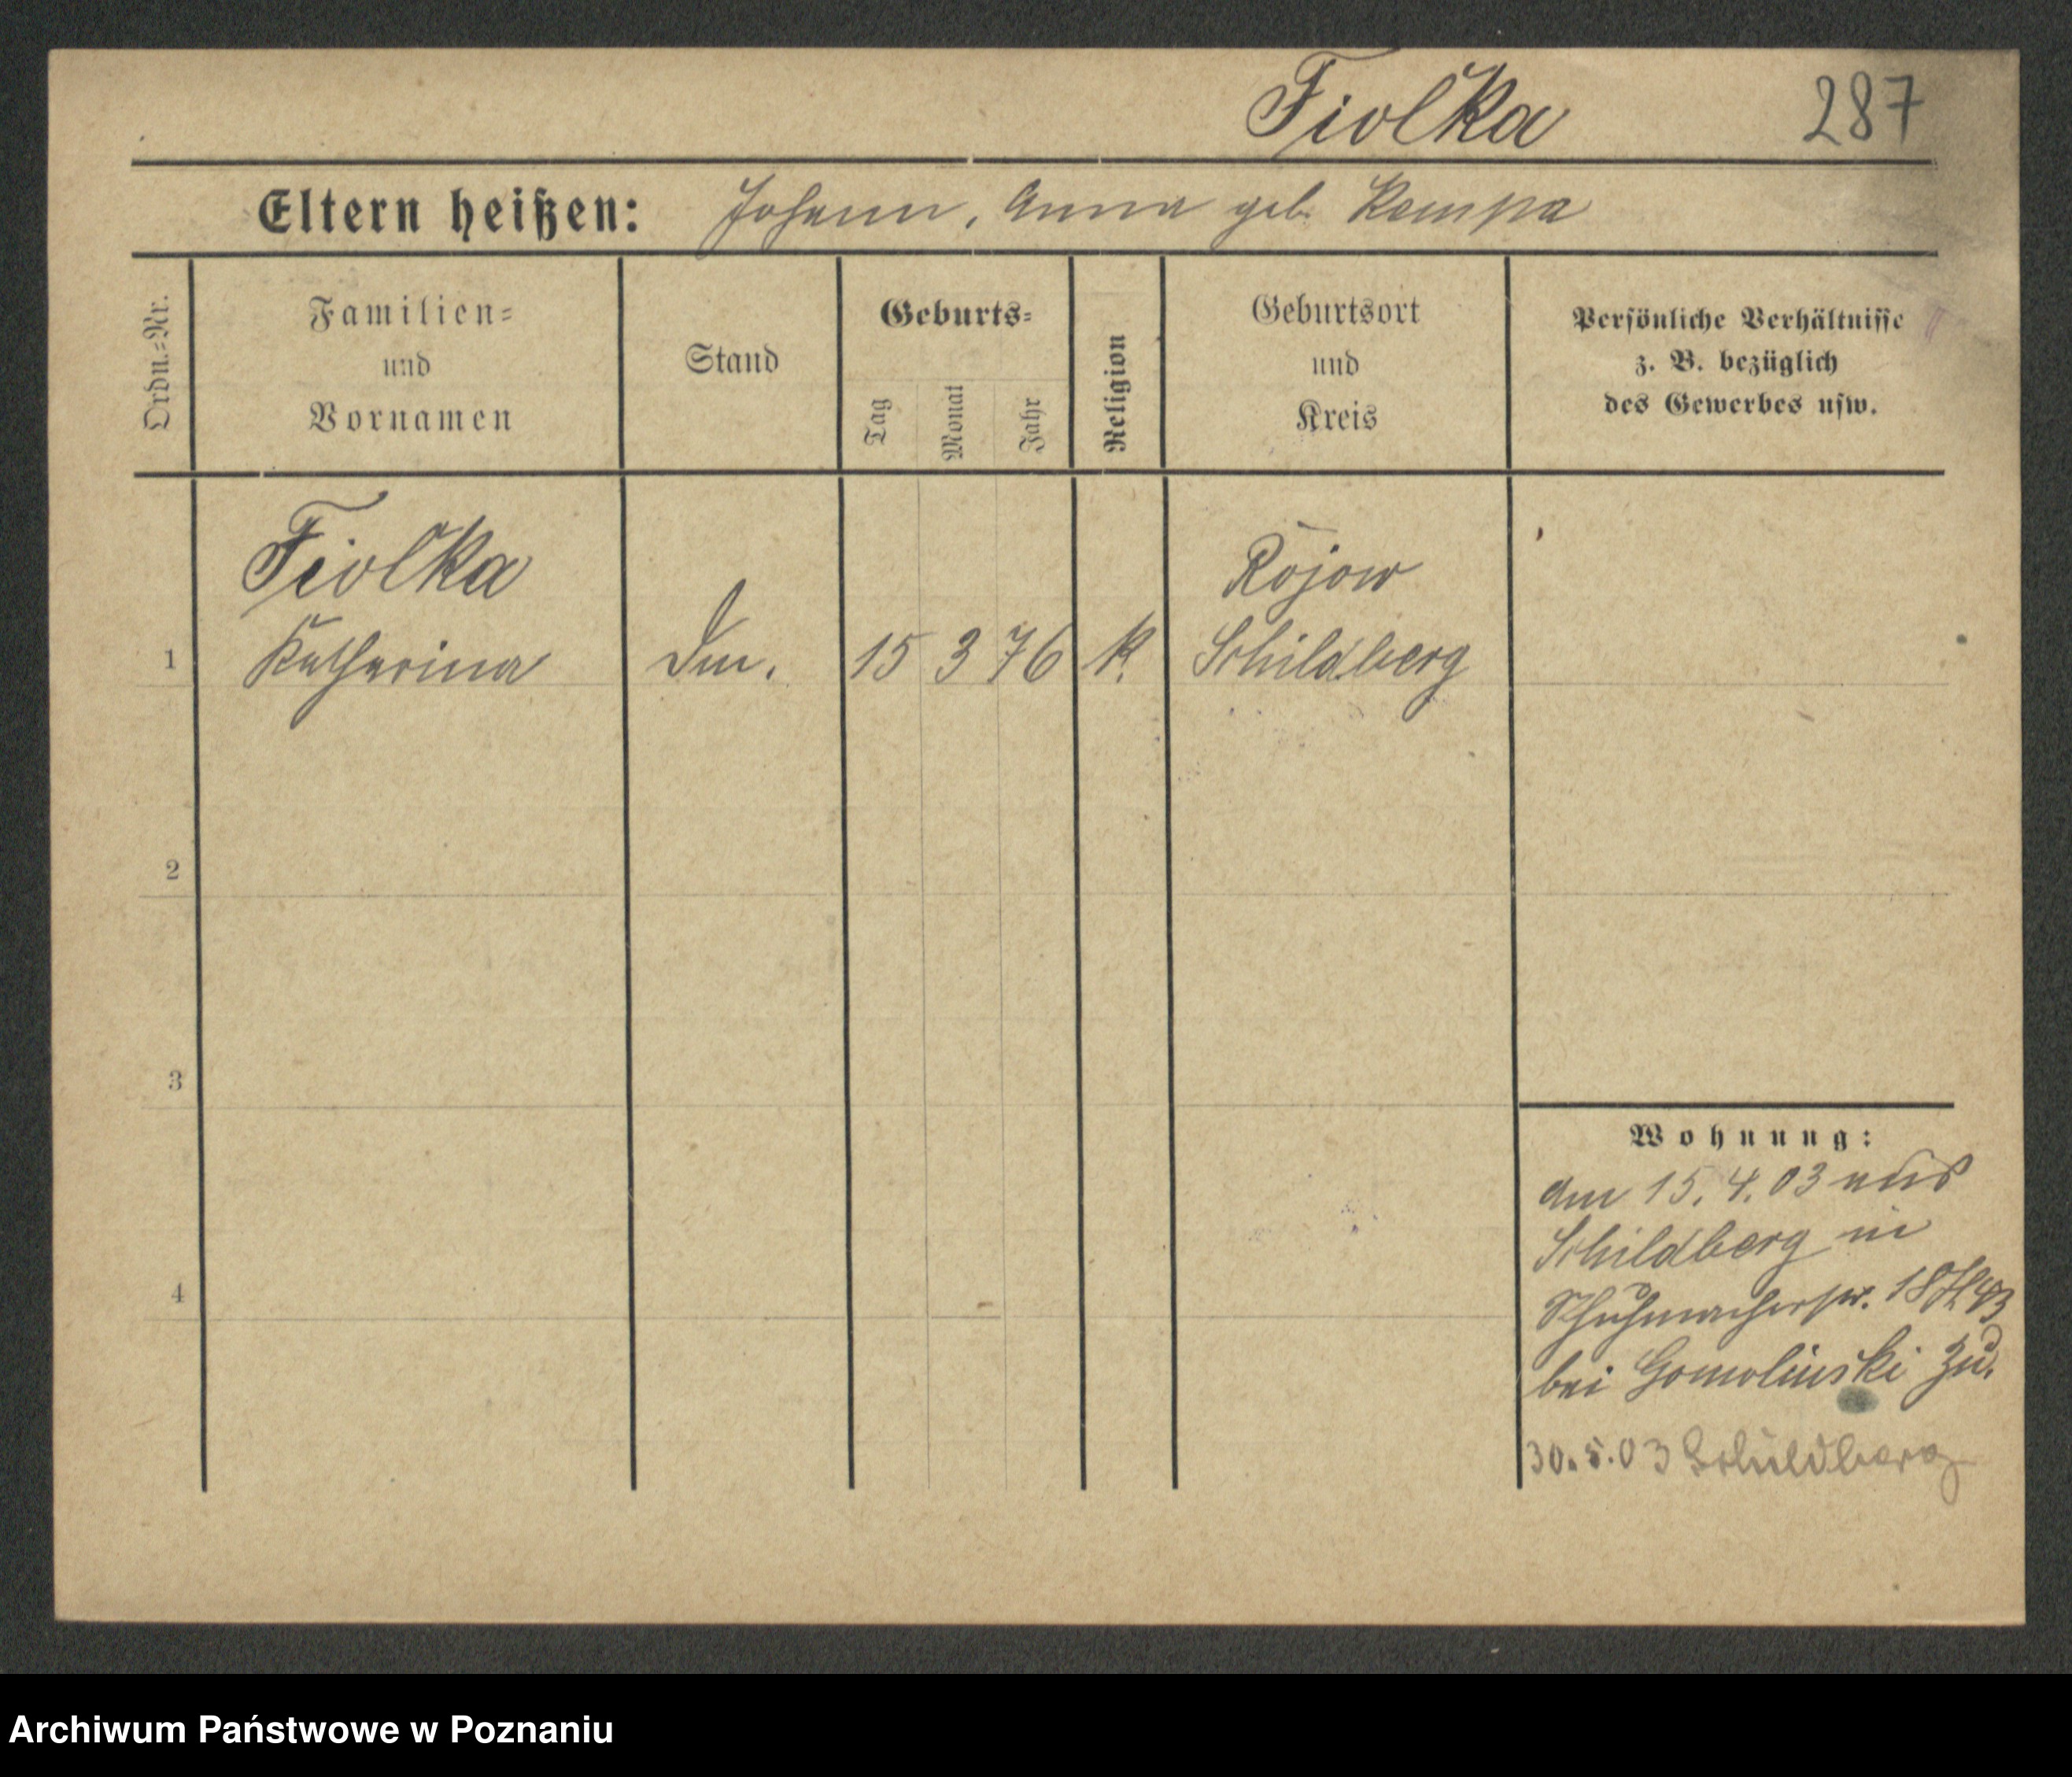 Fiolka 287
Eltern heißen: Johann, Anna geb. Kempa
Ordn.=Nr.
Familien=
und
Vornamen
Stand
Geburts=
Tag
Monat
Jahr
Religion
Geburtsort
und
Kreis
Persönliche Verhältnisse
z. B. bezüglich
des Gewerbes usw.
Fiolka Rojow
1 Katharina 15 3 76 k. Schildberg
2
3
4
Wohnung:
am 15.4.03 aus
Schildberg in
Schuhmacherstr. 18
bei Gomolinski zu.
30.5.03 Schildberg
Archiwum Państwowe w Poznaniu